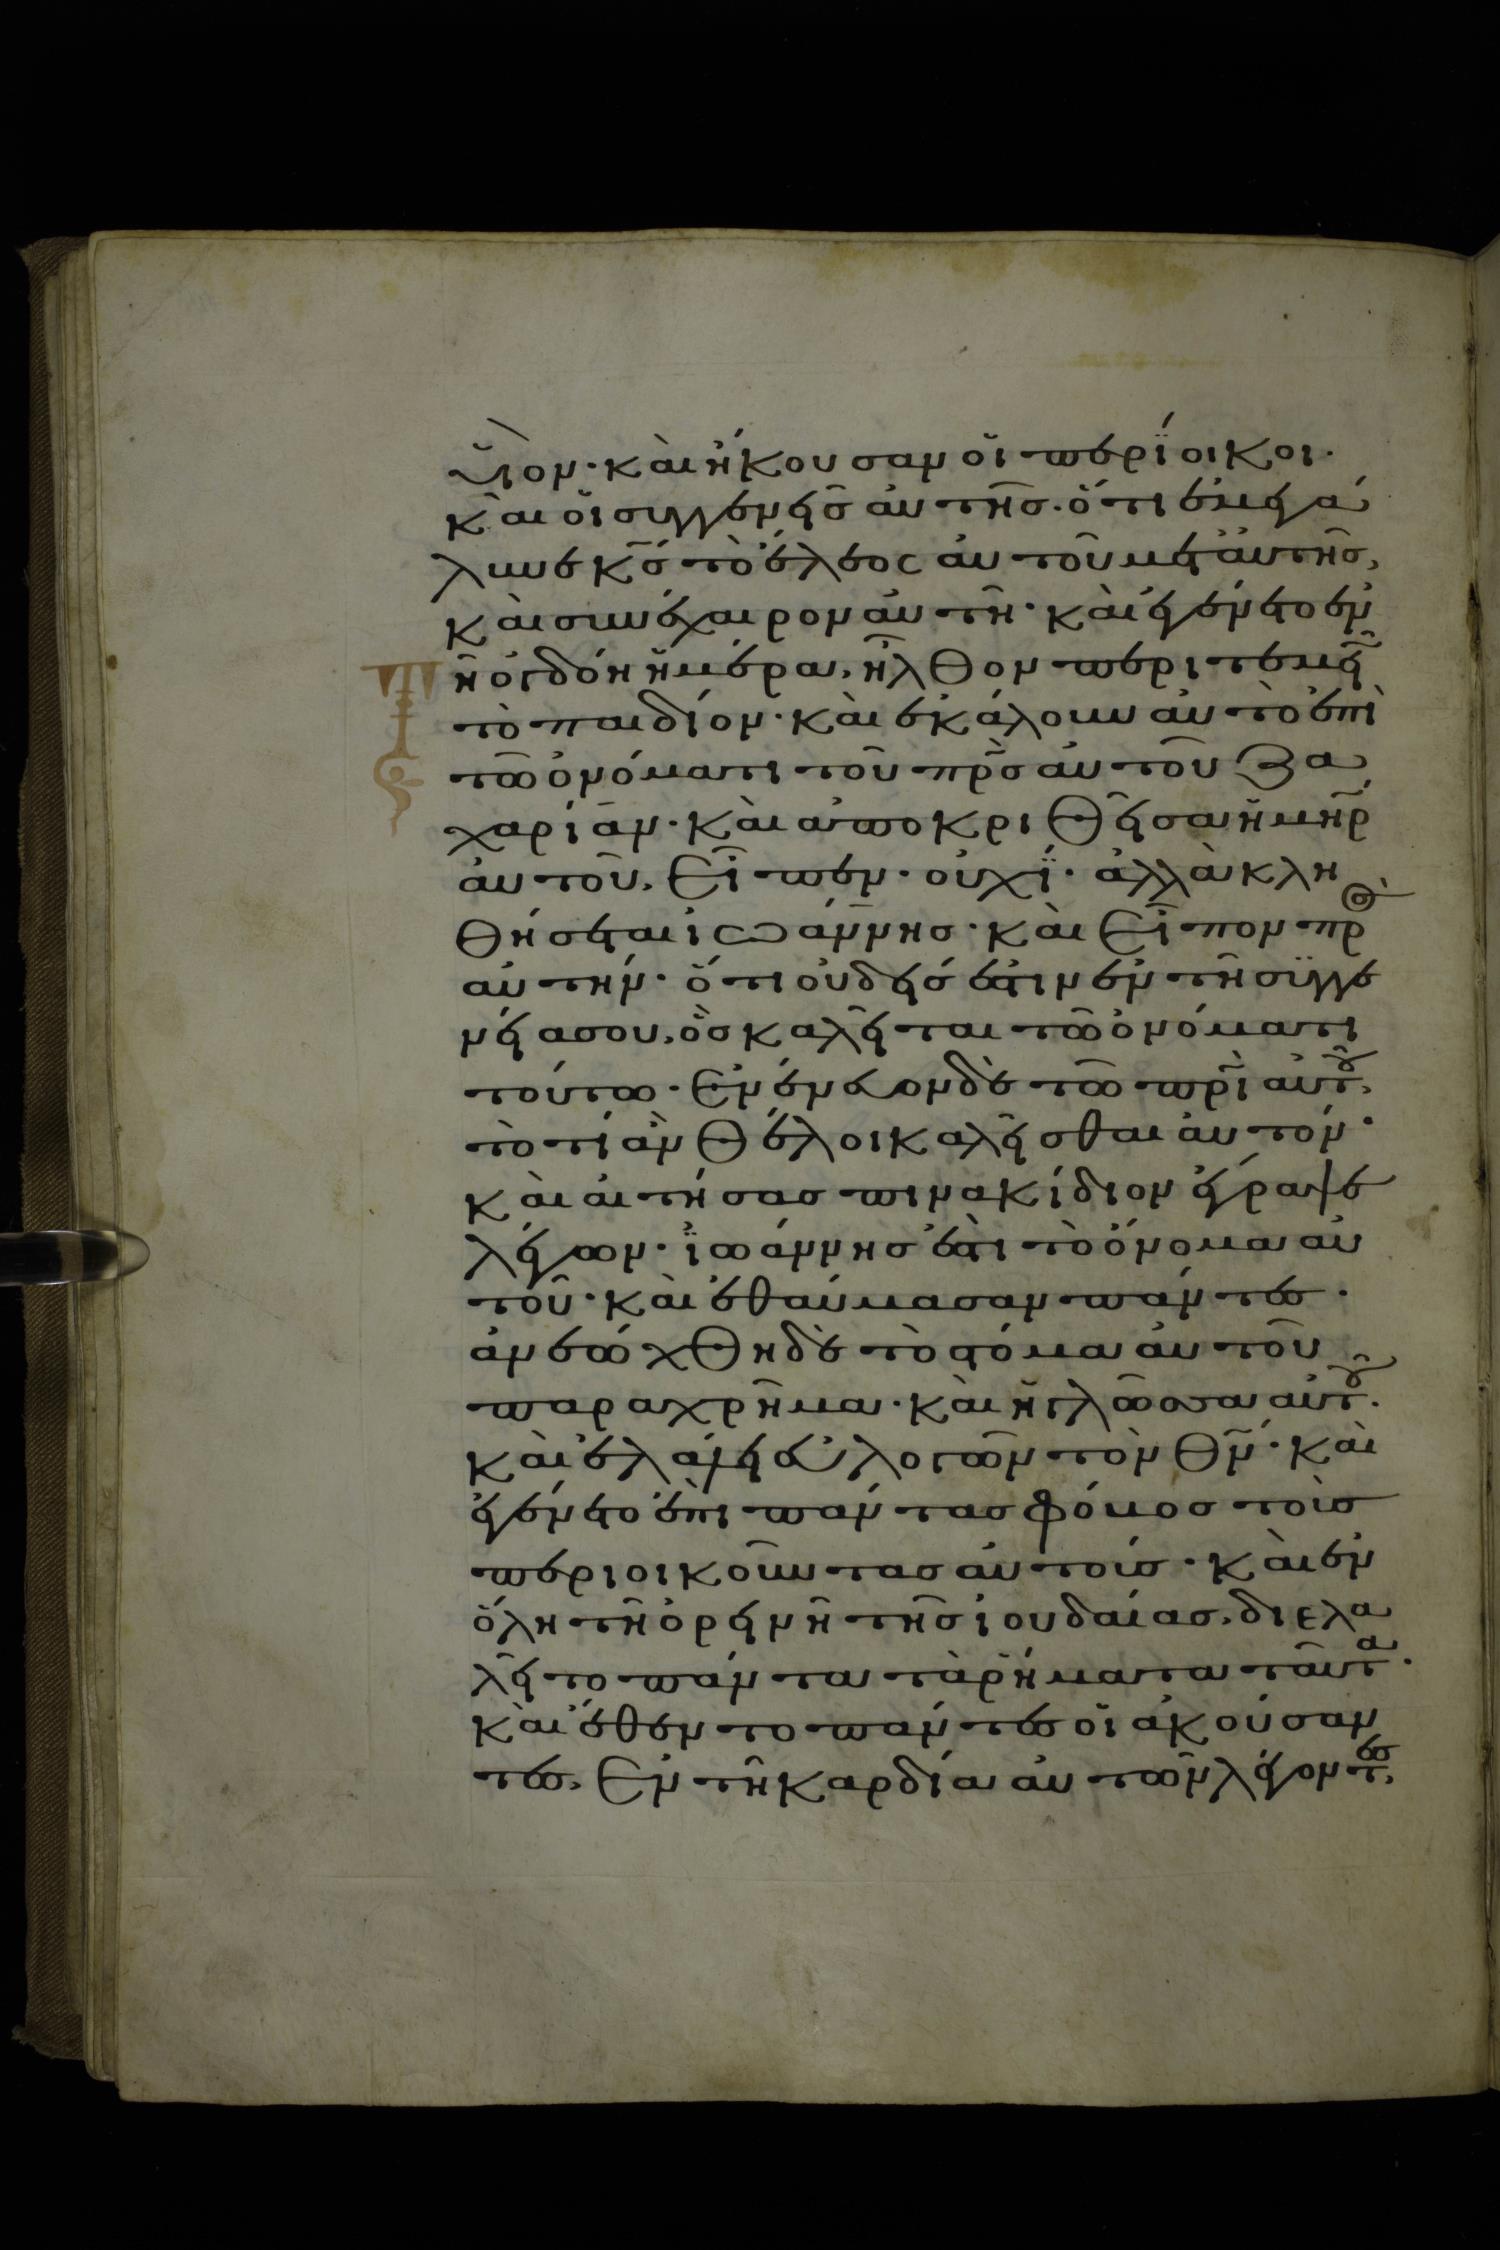 υἱὸν· καὶ ἤκουσαν οἱ περίοικοι·
καὶ οἱ συγγενεῖσ αὐτῆσ· ὅτι ἐμεγά
λυνε κ̅ς̅ τὸ ἔλεος αὐτοῦ μετ᾽ αὐτῆσ,
καὶ συνέχαιρον αὐτῆ· καὶ ἐγένετο ἐν
τῆ ὀγδόη ἡμέρα, ἦλθον περιτεμεῖ̅
τὸ παιδίον· καὶ ἐκάλουν αὐτὸ ἐπὶ
τῶ ὀνόματι τοῦ π̅ρ̅σ̅ αὐτοῦ Ζα
χαρίαν· καὶ ἀποκριθεῖσα ἡ μ̅η̅ρ̅
αὐτοῦ, Εἶπεν· οὐχί· ἀλλὰ κλη
θήσεται ἰωάννησ· καὶ Εἶπον πρὸ
αὐτήν· ὅτι οὐδείσ ἐστιν ἐν τῆ συγγε
νείασου, ὃσ καλεῖται τῶ ὀνόματι
τούτω· Ἐνένευον δὲ τῶ π̅ρ̅ι̅ αὐτοῦ,
τὸ τί ἂν θέλοι καλεῖσθαι αὐτόν·
καὶ αἰτήσασ πινακίδιον ἔγραψε
λέγων· ἰωάννησ ἐστὶ τὸ ὄνομα αὐ
τοῦ· καὶ ἐθαύμασαν πάντεσ·
ἀνεώχθη δὲ τὸ στόμα αὐτοῦ
παραχρῆμα· καὶ ἡ γλῶσσα αὐτοῦ·
καὶ ἐλάλει εὐλογῶν τὸν θ̅ν̅· καὶ
ἐγένετο ἐπὶ πάντασ φόβοσ τοὺσ
περιοικοῦντασ αὐτούσ· καὶ ἐν
ὅλη τῆ ὀρεινῆ τῆσ ἰουδαίασ, διελα
λεῖτο πάντα τὰ ῥήματα ταῦτα·
καὶ ἔθεντο πάντεσ οἱ ἀκούσαν
τεσ, Ἐν τῆ καρδία αὐτῶν λέγοντεσ,